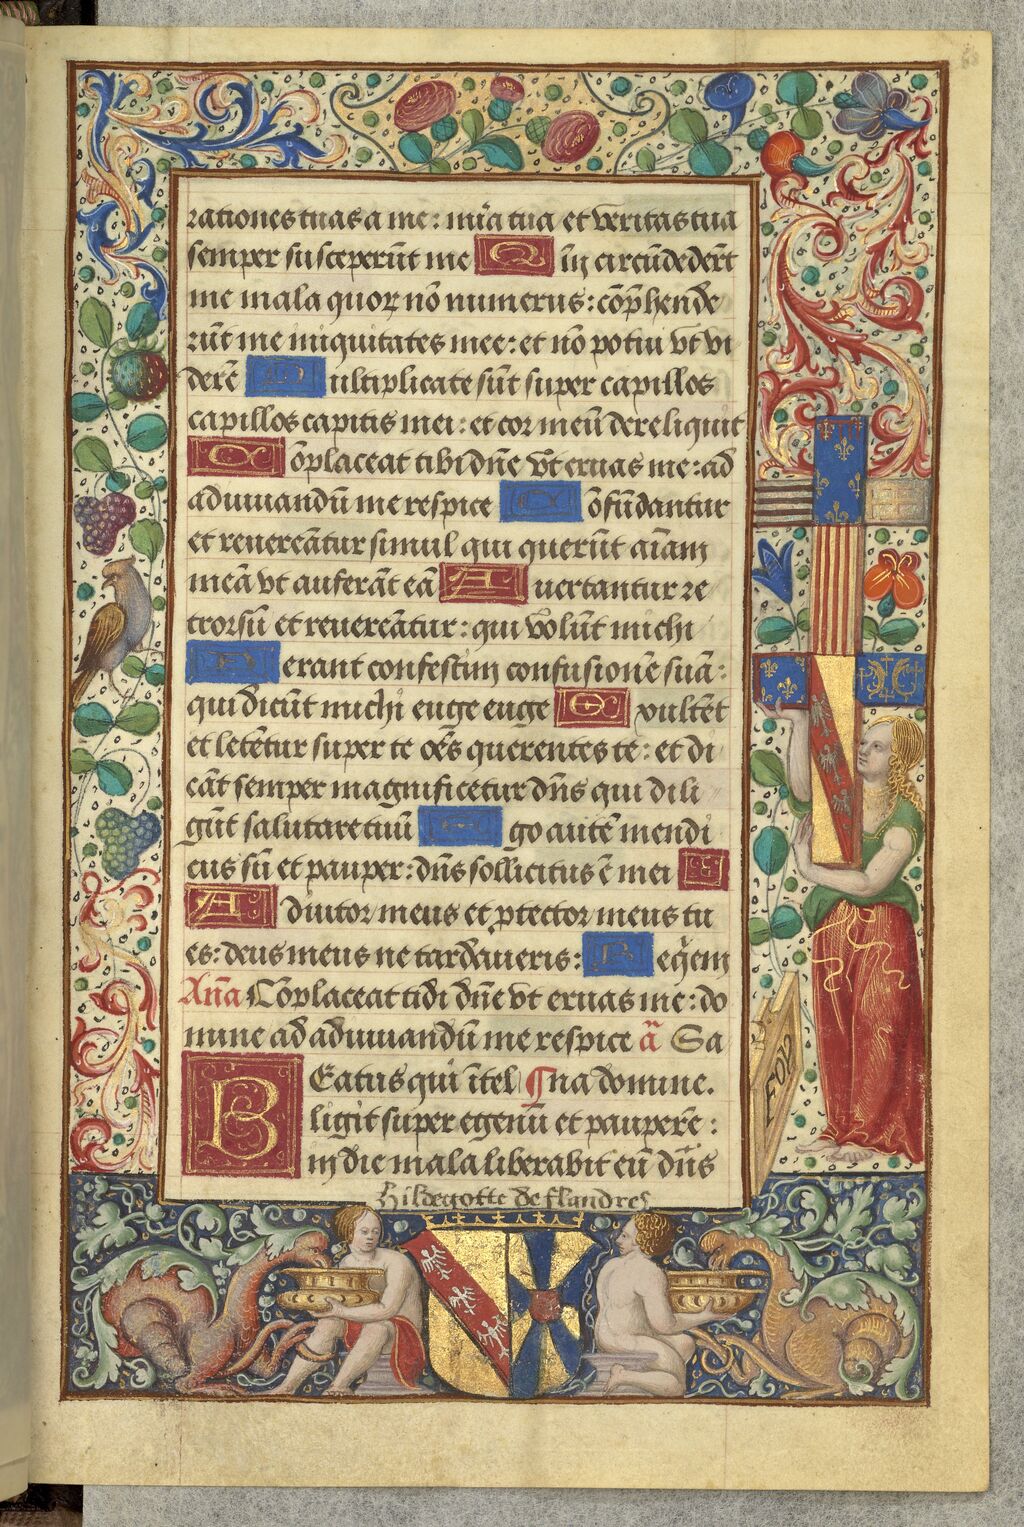 rationes tuas a me: mīa tua et veritas tua
semper susceperūt me Qm̄ circūdedert̄
me mala quor nō numerus: cōp̄hende
rūt me iniquitates mee: et nō potiu vt vi
derē Multiplicate sūt super capillos
capillos capitis mei: et cor meū dereliquit
Cōplaceat tibi dn̄e vt eruas me: ad
adiuuandū me respice Cōfūdantur
et reuereātur simul qui querūt aīam
meā vt auferāt eā Auertantur re
trorsū et reuereātur: qui volūt michi
Ferant confestim confusionē suā:
qui dicūt michi euge euge Exultēt
et letētur super te oēs querentes te: et di
cāt semper magnificetur dn̄s qui dili
gūt salutare tuū Ego autē mendi
cus sū et pauper: dn̄s sollicitus ē mei
Adiutor meus et ptector meus tu
es: deus meus ne tardaueris: Reqēm
Aña Cōplaceat tidi dn̄e vt eruas me: do
mine ad adiuuandū me respice ā Sa
Beatus qui ītel ¶ na domine.
ligit super egenū et pauperē:
in die mala liberabit eū dn̄s
Hildegotte de flandres
FOY